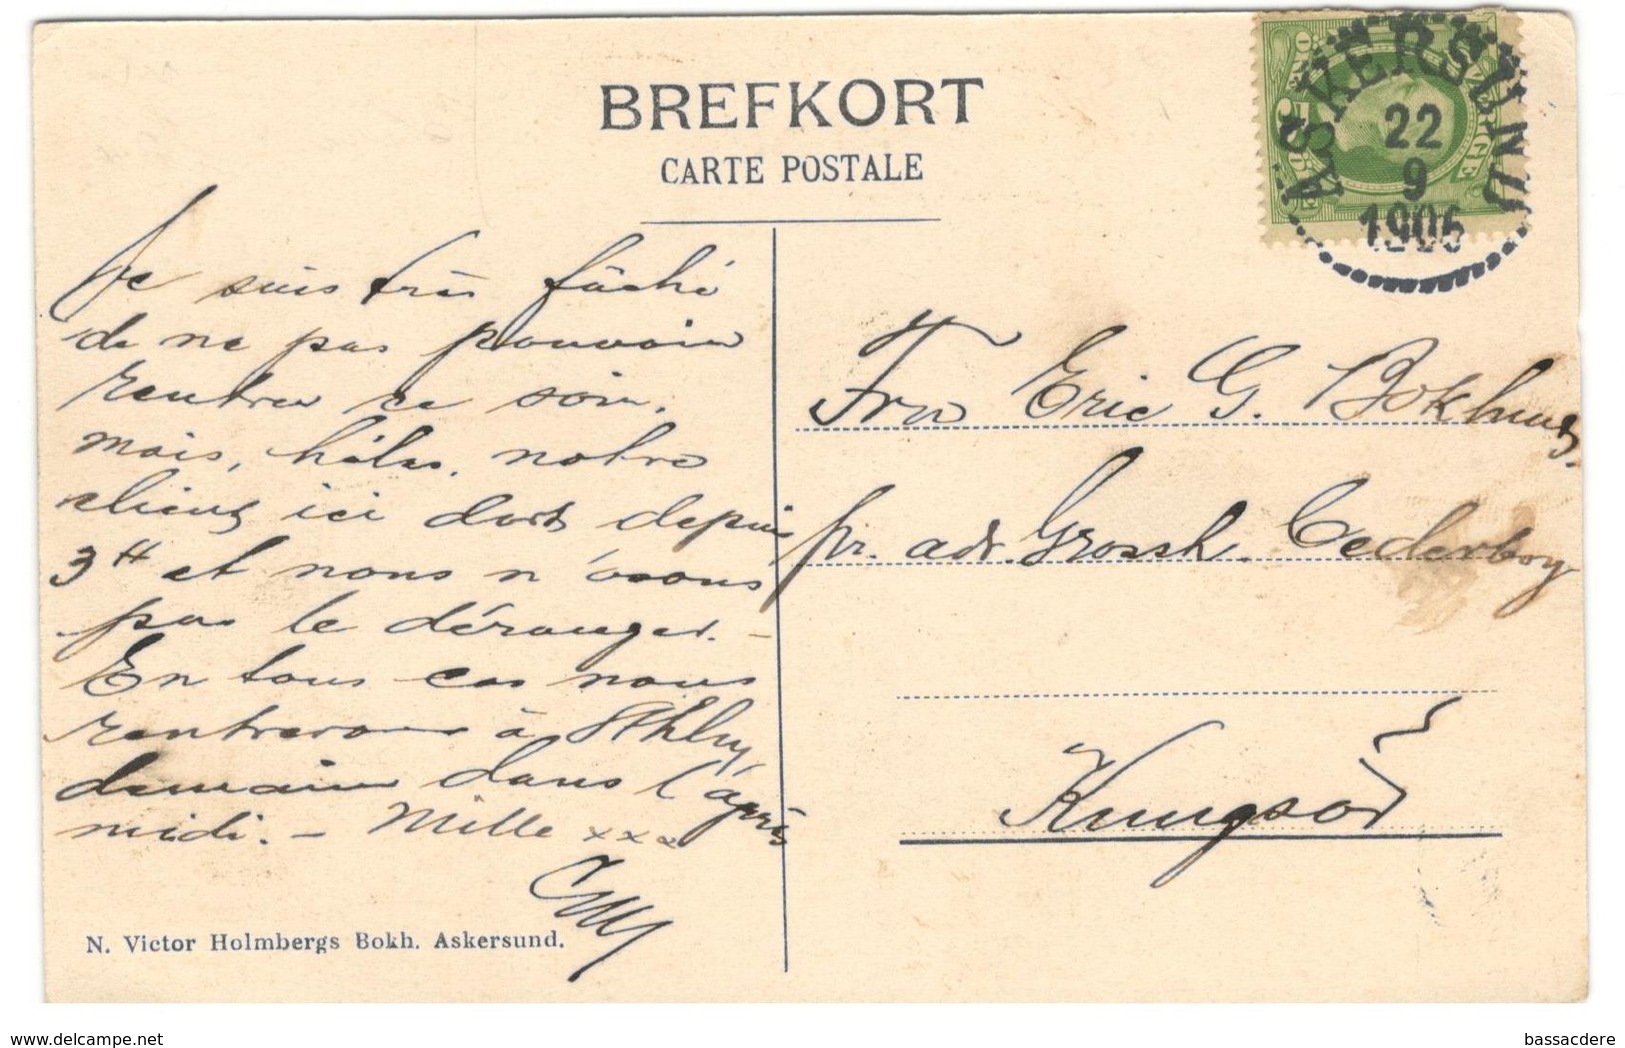 BREFKORT
CARTE POSTALE
SVERIGE
ASKERSUND
22
9
1906
Je suis très fâché
de ne pas pouvoir
rentrer ce soir,
mais, hélas, notre
client ici dort depuis
3 H et nous n'osons
pas le déranger. –
En tous cas nous
rentrerons à Sthlm,
demain dans l'après
midi. – Mille xxx
Fru Eric G. Bokhus
pr. adr. Grossh. Cederborg
Kungsör
N. Victor Holmbergs Bokh. Askersund.
www.delcampe.net
bassacdere